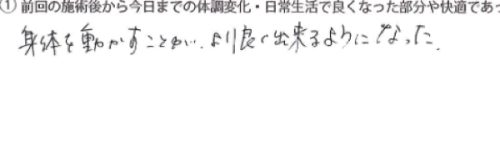 ①前回の施術後から今日までの体調変化・日常生活で良くなった部分や快適であっ
身体を動かすことが、より良く出来るようになった。